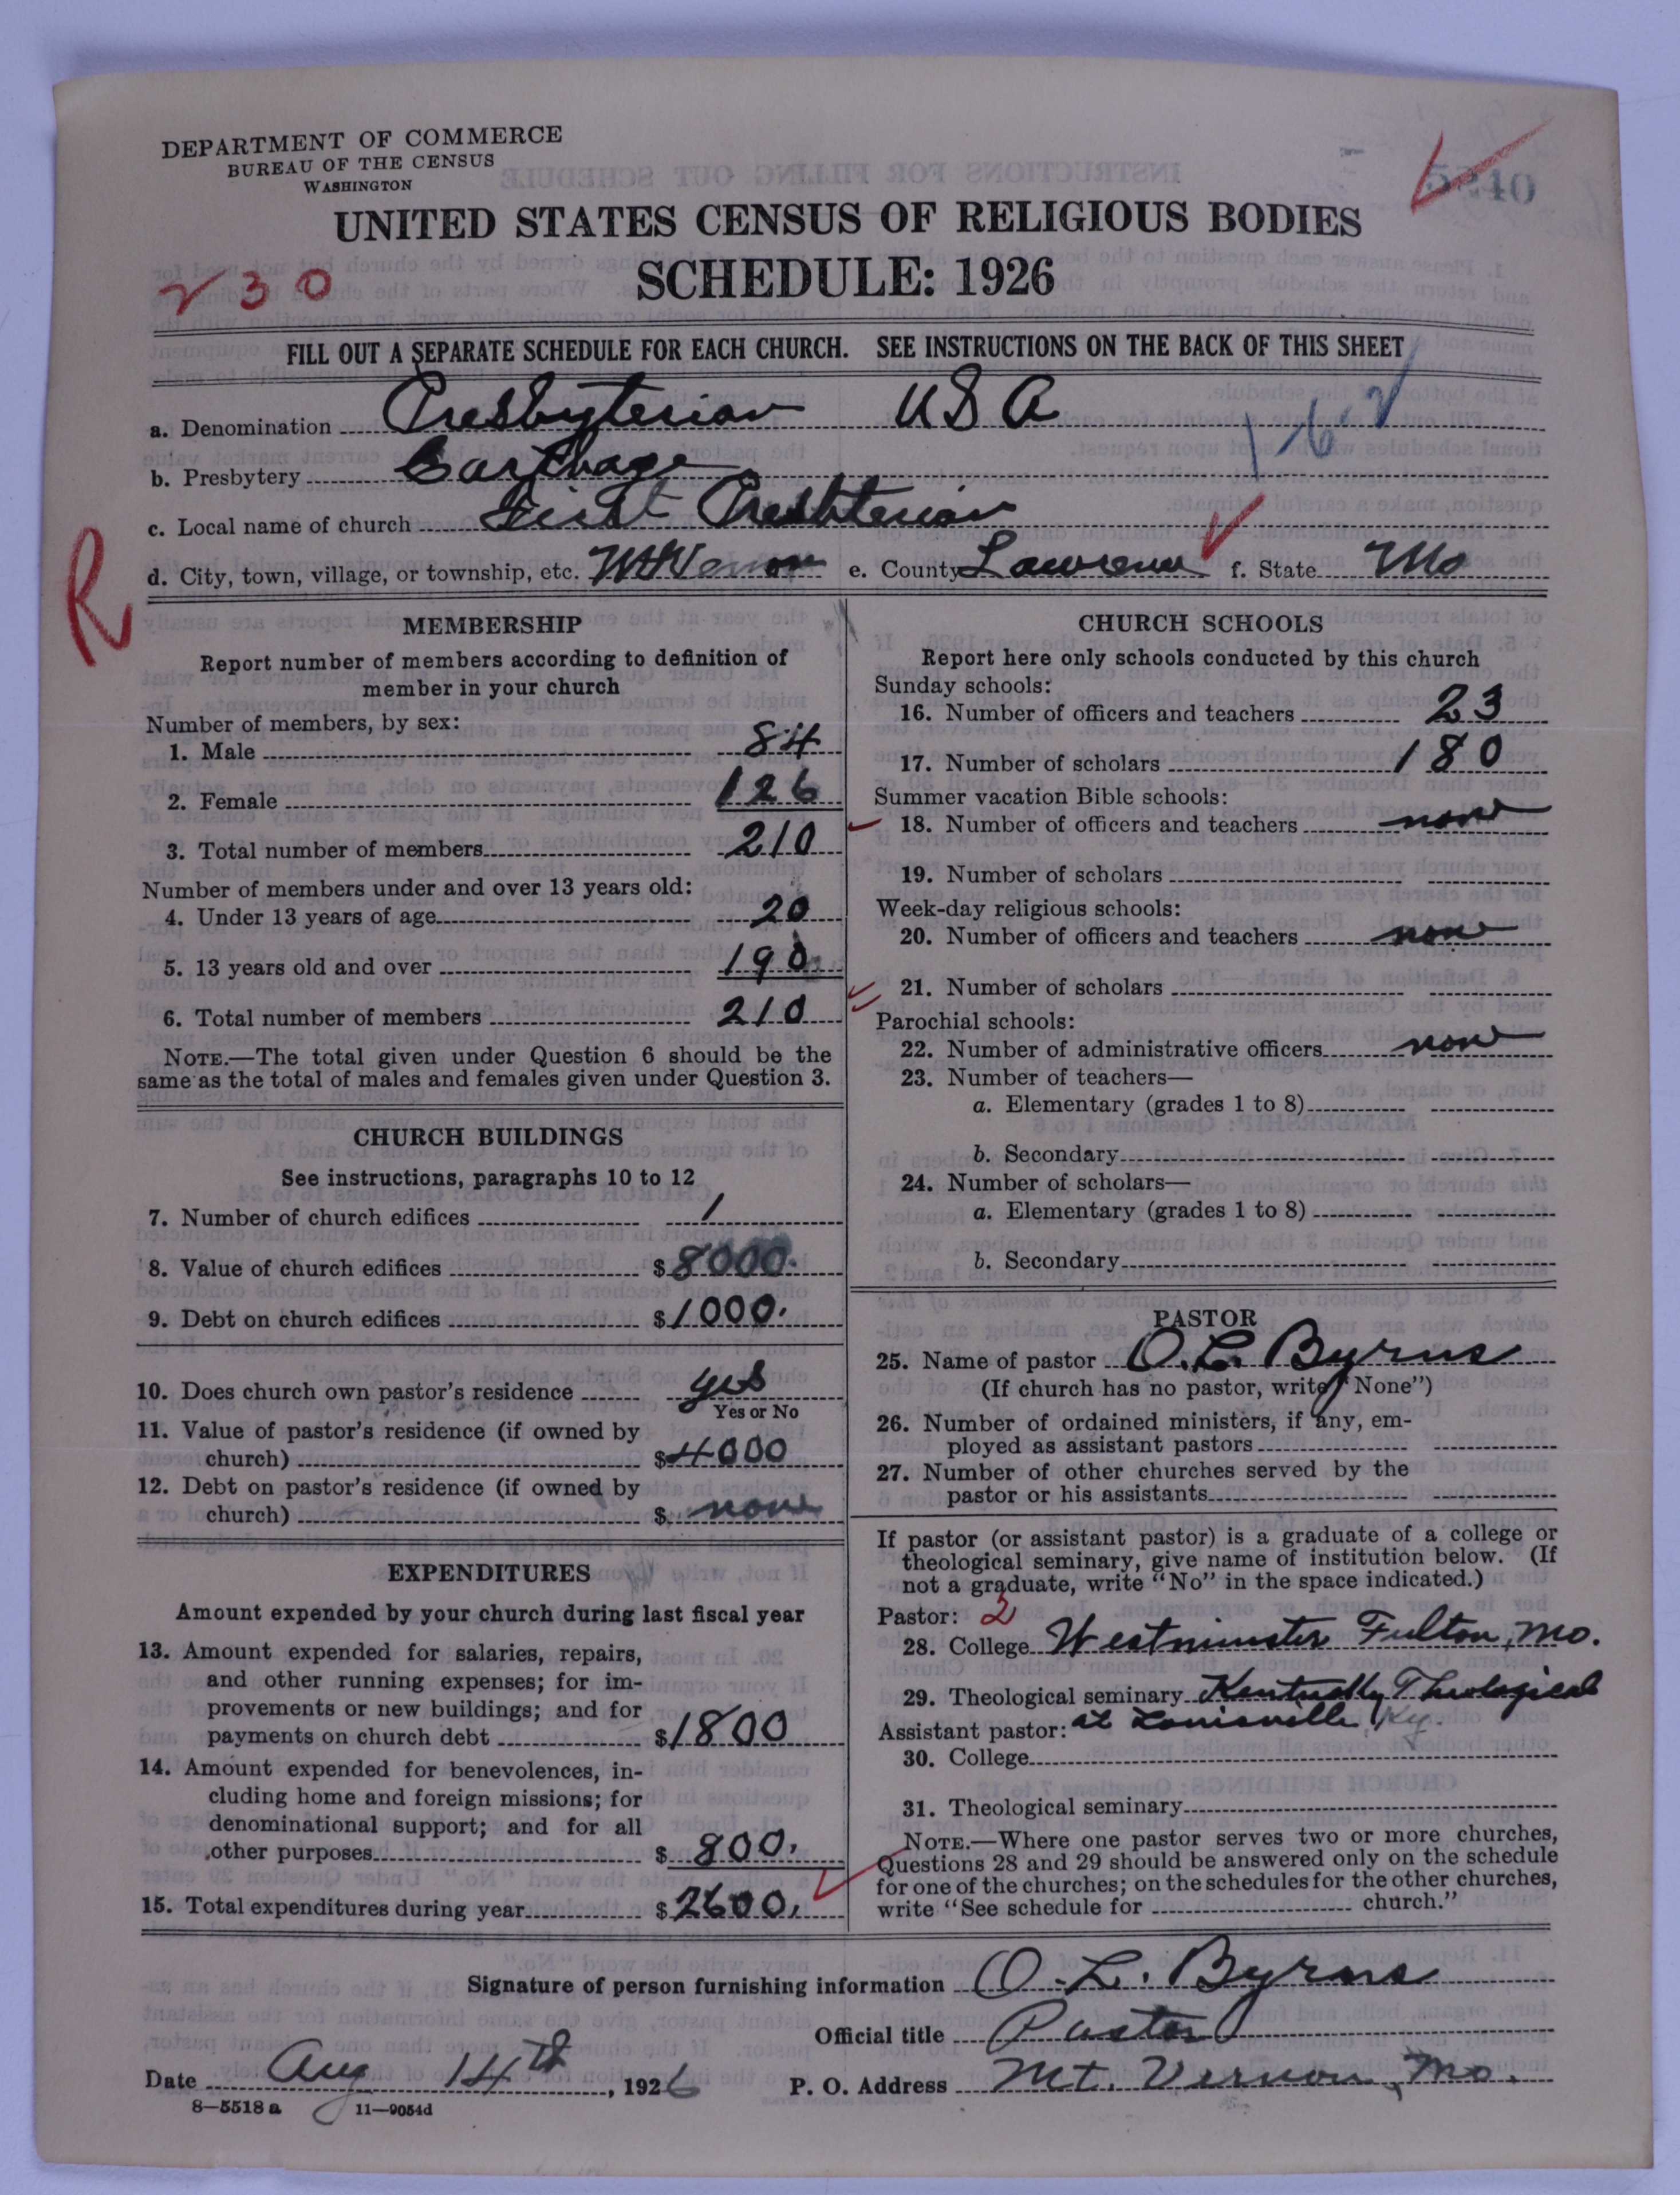 DEPARTMENT OF COMMERCE
BUREAU OF THE CENSUS
WASHINGTON
UNITED STATES CENSUS OF RELIGIOUS BODIES
SCHEDULE: 1926
230
FILL OUT A SEPARATE SCHEDULE FOR EACH CHURCH. SEE INSTRUCTIONS ON THE BACK OF THIS SHEET
a. Denomination Presbyterian USA
b. Presbytery Carthage
c. Local name of church First Presbterian
d. City, town, village, or township, etc. Mt Vernon e. County Lawrence f. State Mo
R
MEMBERSHIP
Report number of members according to definition of
member in your church
Number of members, by sex:
1. Male 84
2. Female 126
3. Total number of members 210
Number of members under and over 13 years old:
4. Under 13 years of age 20
5. 13 years old and over 190
6. Total number of members 210
NOTE.—The total given under Question 6 should be the
same as the total of males and females given under Question 3.
CHURCH BUILDINGS
See instructions, paragraphs 10 to 12
7. Number of church edifices 1
8. Value of church edifices $8000.
9. Debt on church edifices $1000.
10. Does church own pastor's residence yes
Yes or No
11. Value of pastor's residence (if owned by
church) $4000
12. Debt on pastor's residence (if owned by
church) $ none
EXPENDITURES
Amount expended by your church during last fiscal year
13. Amount expended for salaries, repairs,
and other running expenses; for im-
provements or new buildings; and for
payments on church debt $1800
14. Amount expended for benevolences, in-
cluding home and foreign missions; for
denominational support; and for all
other purposes $800.
15. Total expenditures during year $2600.
CHURCH SCHOOLS
Report here only schools conducted by this church
Sunday schools:
16. Number of officers and teachers 23
17. Number of scholars 180
Summer vacation Bible schools:
18. Number of officers and teachers none
19. Number of scholars
Week-day religious schools:
20. Number of officers and teachers none
21. Number of scholars
Parochial schools:
22. Number of administrative officers none
23. Number of teachers—
a. Elementary (grades 1 to 8)
b. Secondary
24. Number of scholars—
a. Elementary (grades 1 to 8)
b. Secondary
PASTOR
25. Name of pastor O. L. Byrns
(If church has no pastor, write "None")
26. Number of ordained ministers, if any, em-
ployed as assistant pastors
27. Number of other churches served by the
pastor or his assistants
If pastor (or assistant pastor) is a graduate of a college or
theological seminary, give name of institution below. (If
not a graduate, write "No" in the space indicated.)
Pastor: 2
28. College Westminster Fulton, Mo.
29. Theological seminary Kentucky Theological
Assistant pastor: at Louisville, Ky.
30. College
31. Theological seminary
NOTE.—Where one pastor serves two or more churches,
Questions 28 and 29 should be answered only on the schedule
for one of the churches; on the schedules for the other churches,
write "See schedule for church."
Signature of person furnishing information O. L. Byrns
Official title Pastor
Date Aug 14th, 1926 P. O. Address Mt. Vernon, Mo.
8—5518 a 11—9054d